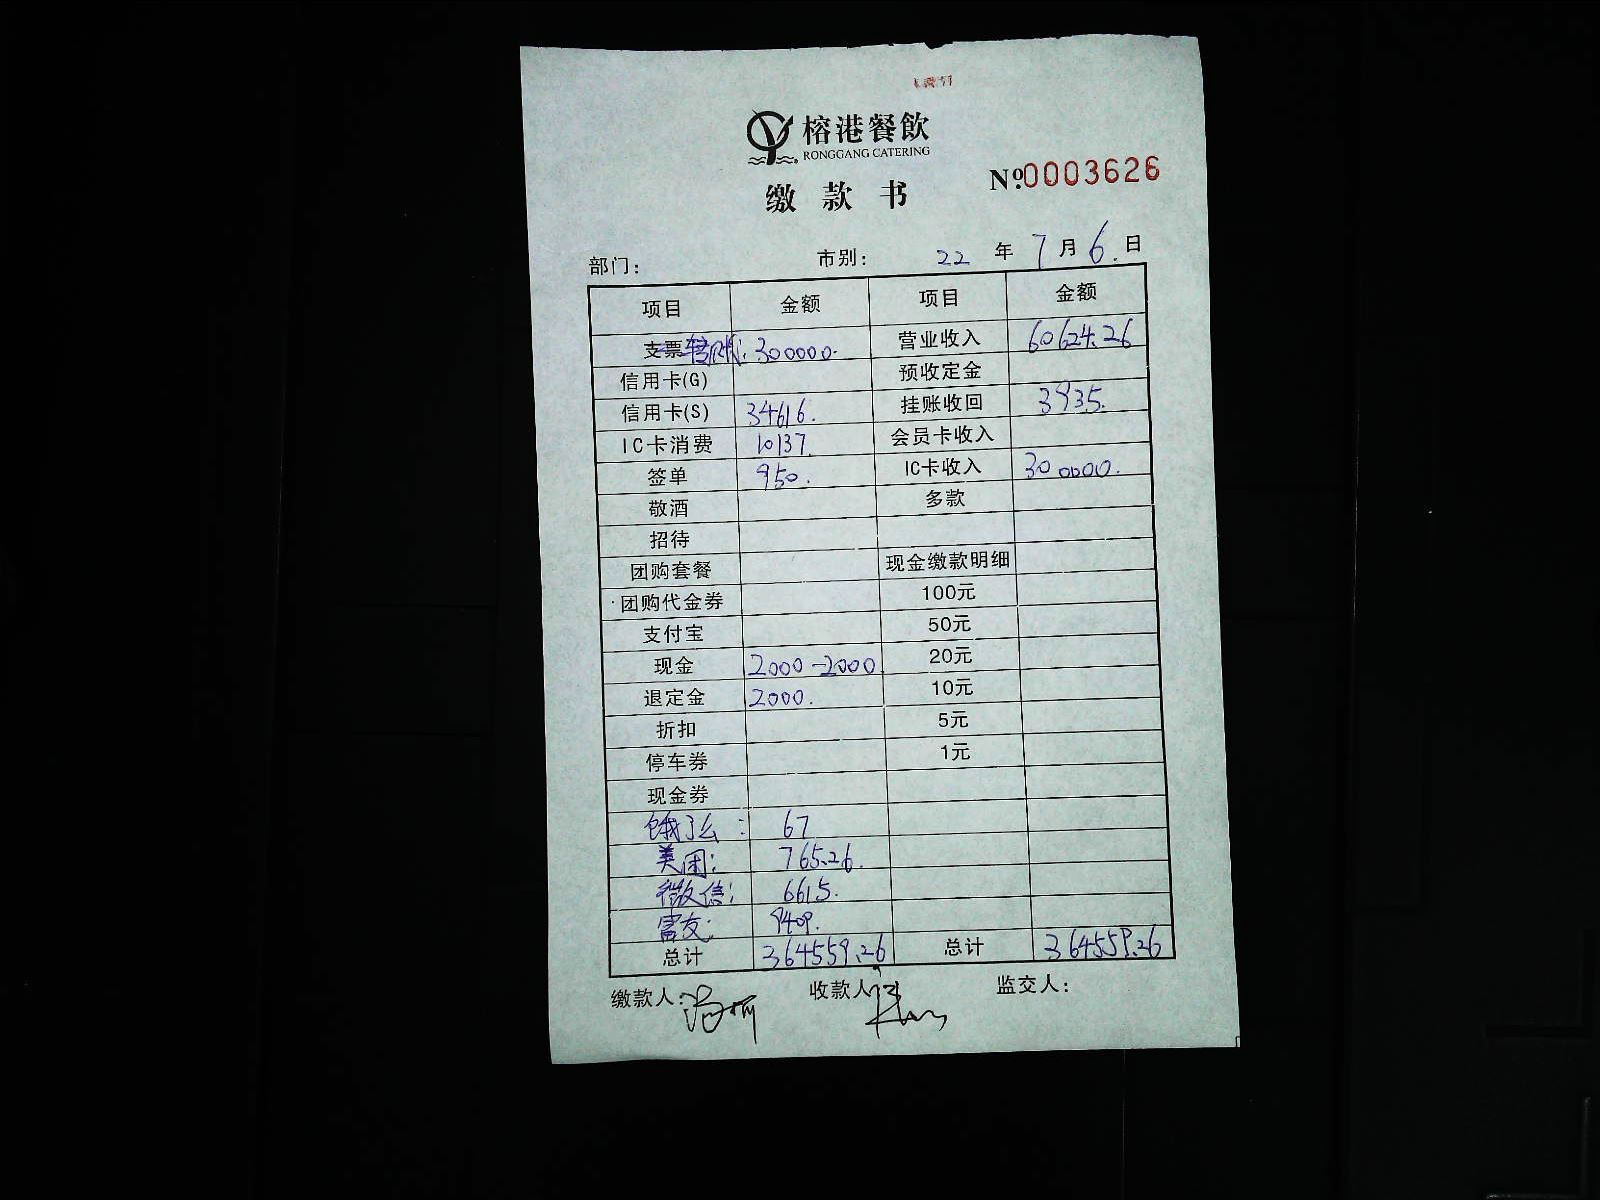 榕港餐飲
RONGGANG CATERING
缴款书
№0003626
部门： 市别： 22 年 7 月 6 日
项目 金额 项目 金额
支票转账: 300000. 营业收入 60624.26
信用卡(G) 预收定金
信用卡(S) 34616. 挂账收回 3935.
IC卡消费 10137. 会员卡收入
签单 950. IC卡收入 300000.
敬酒 多款
招待
团购套餐 现金缴款明细
团购代金券 100元
支付宝 50元
现金 2000-2000 20元
退定金 2000. 10元
折扣 5元
停车券 1元
现金券
饿了么: 67
美团: 765.26.
微信: 6615.
富友: 9409.
总计 364559.26 总计 364559.26
缴款人: 收款人 监交人: